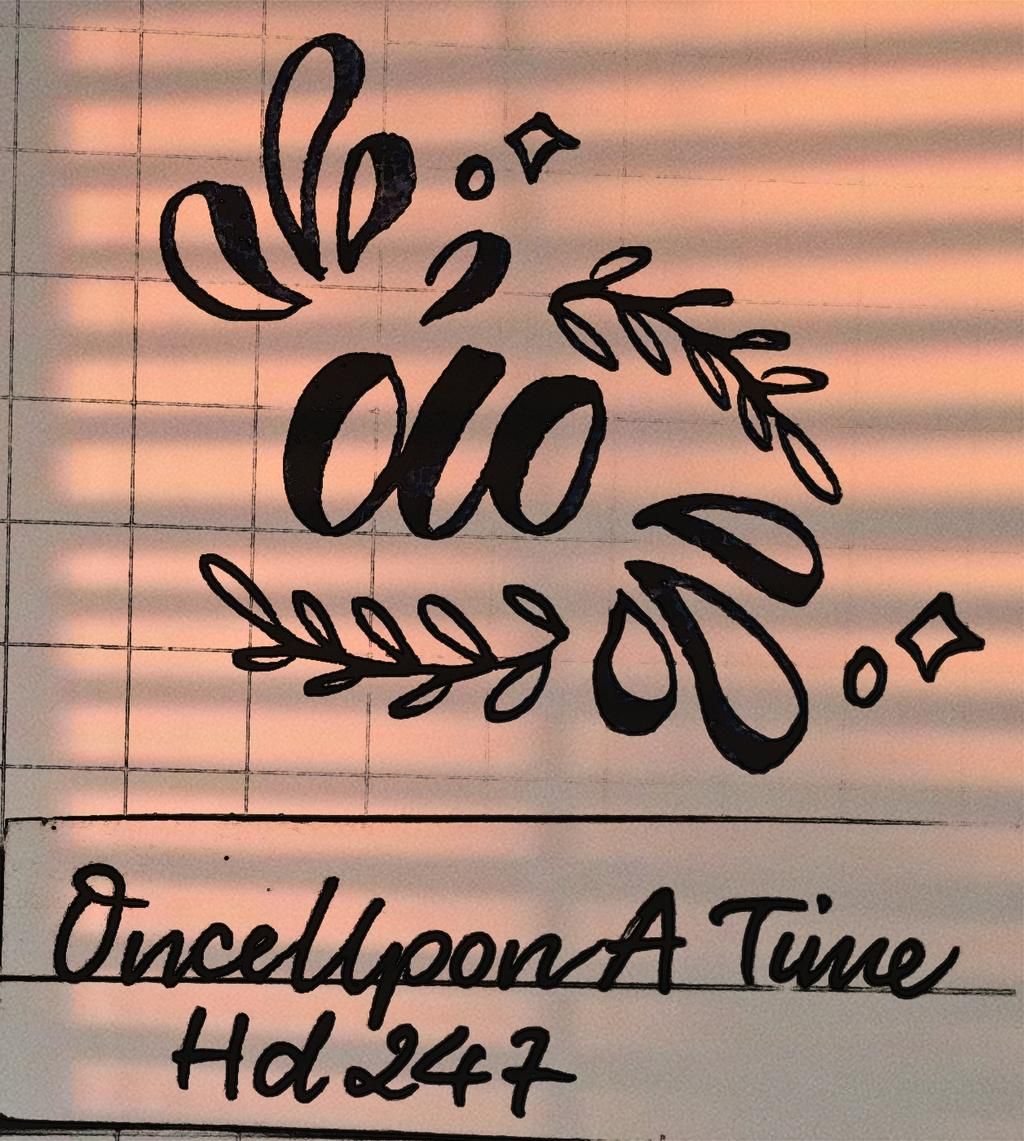 áo
OnceUpon A Time
Hd 247